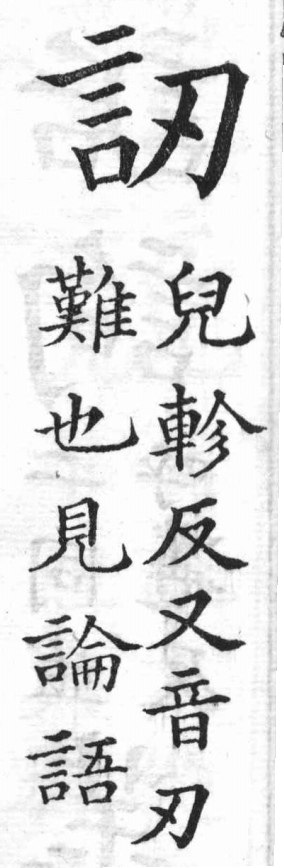 訒
兒軫反又音刃
難也見論語